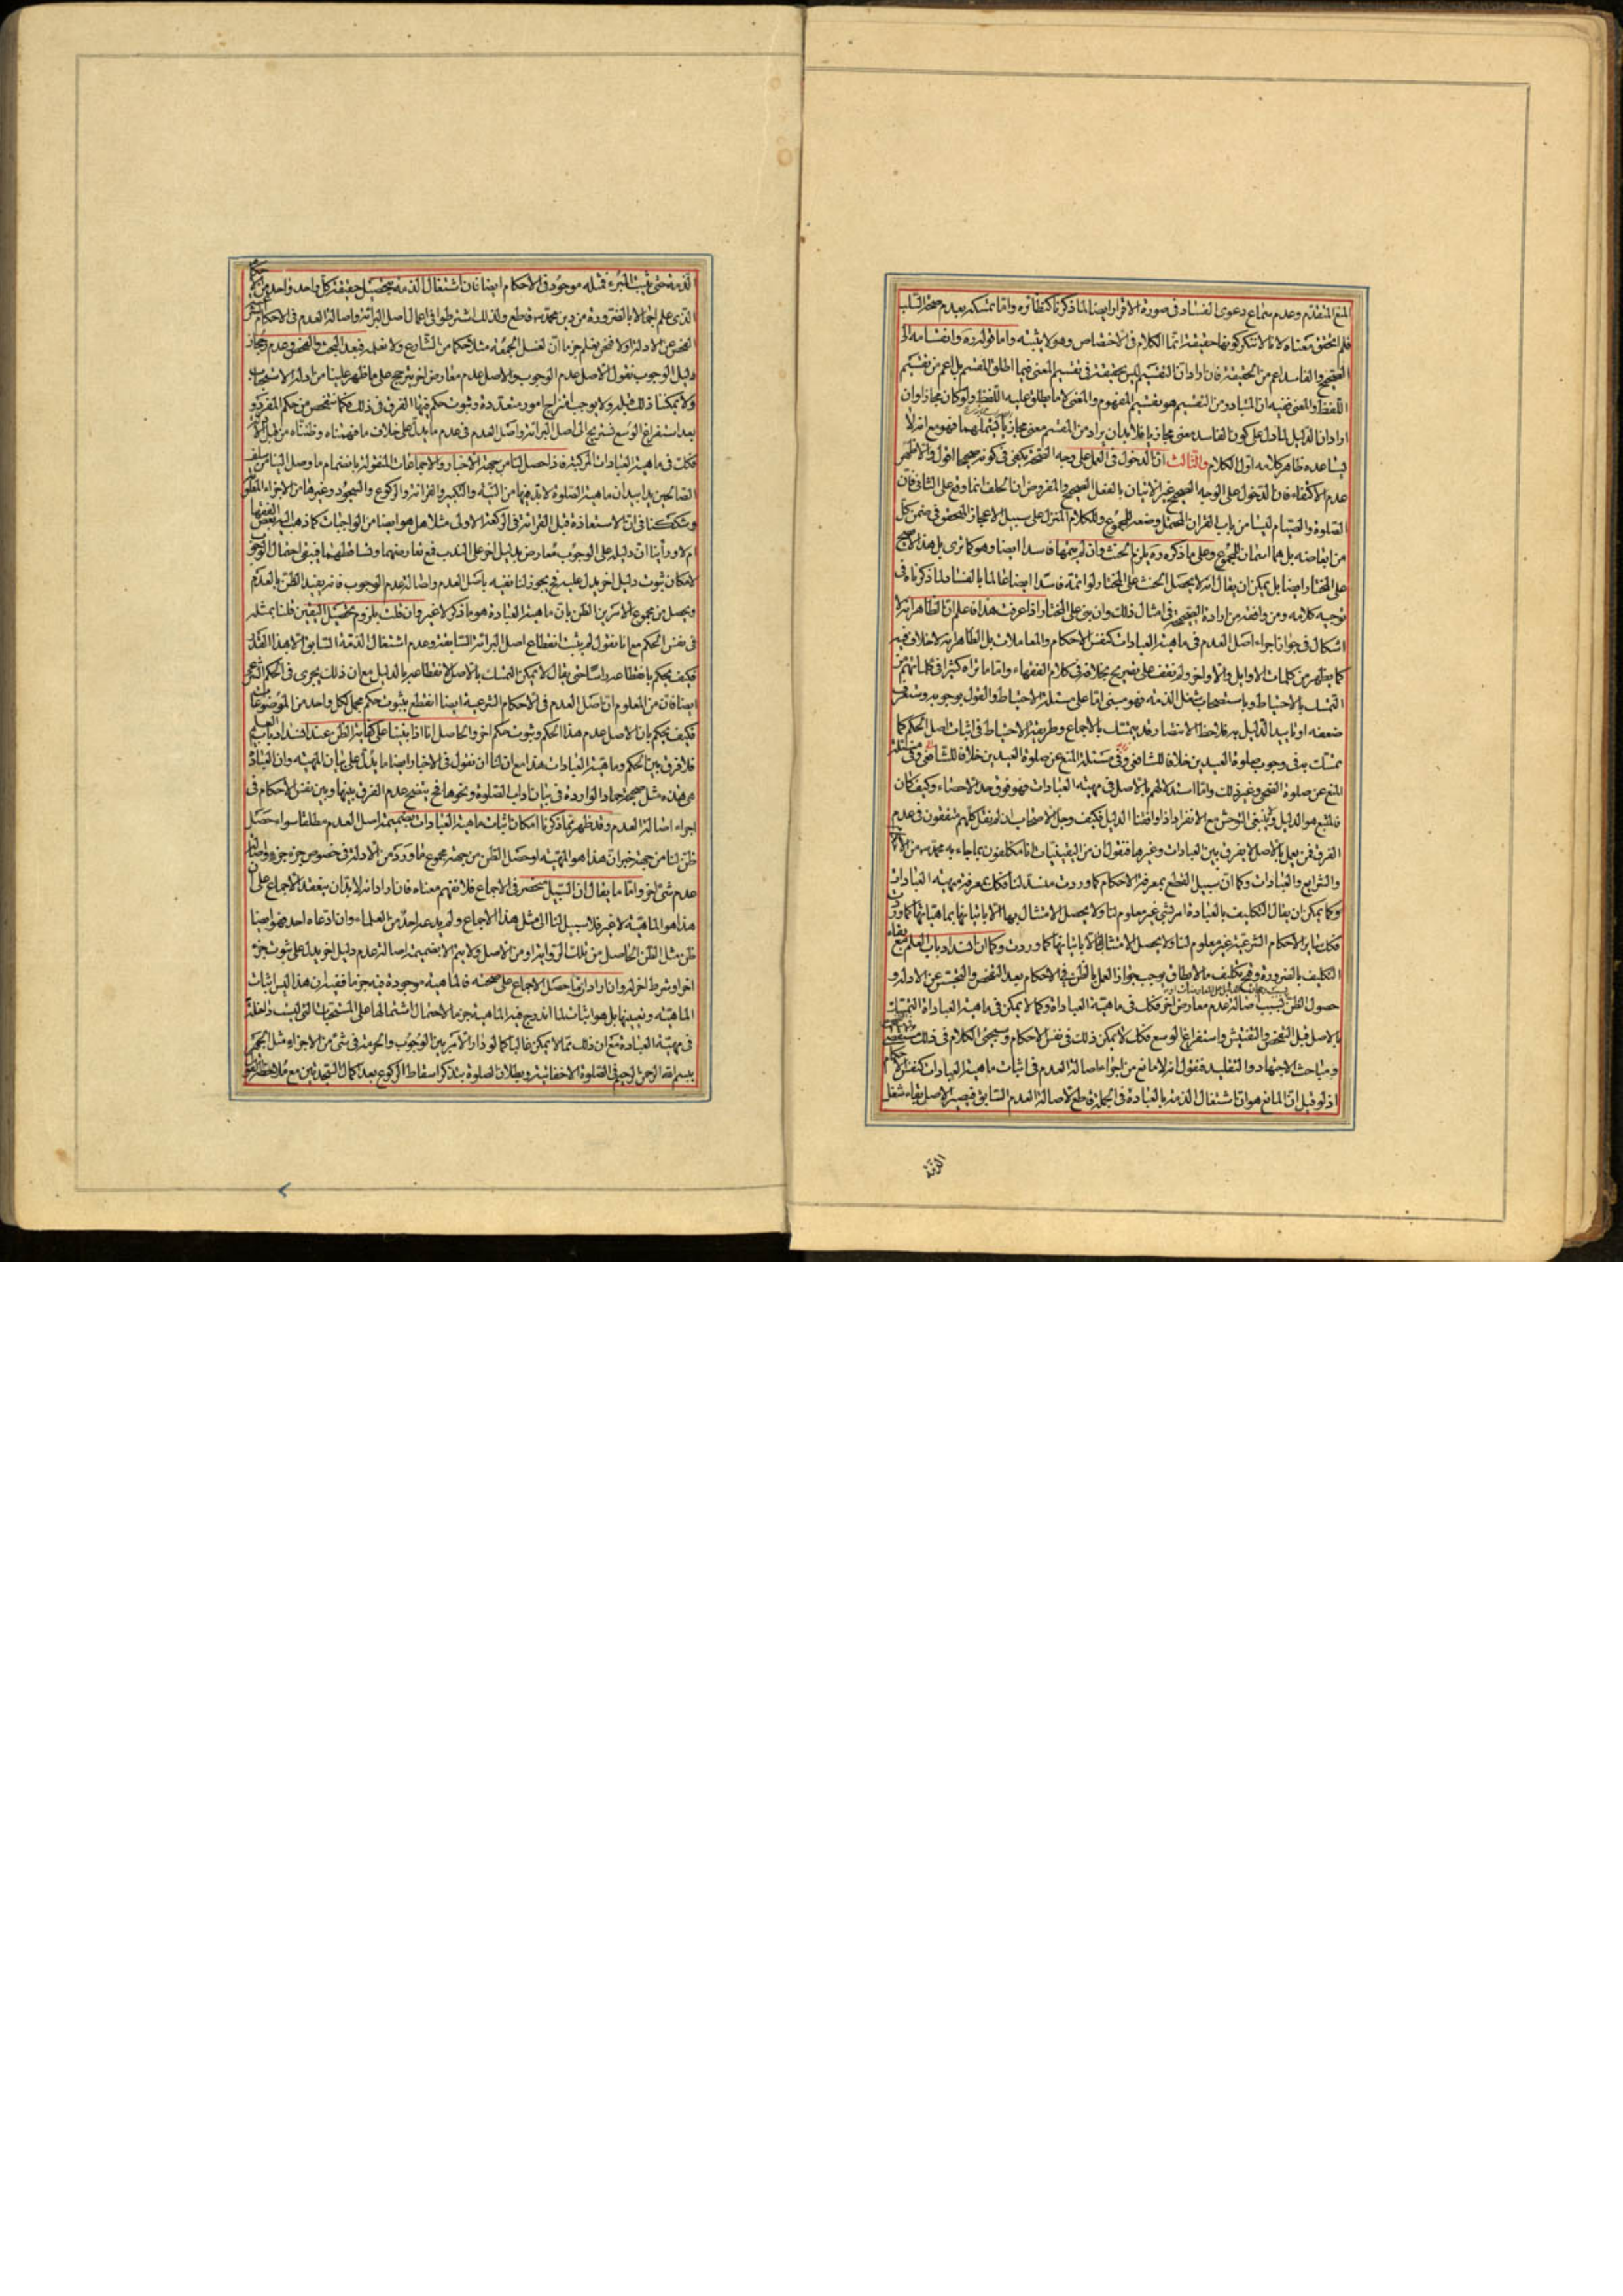 المنع المتقدم وعدم سماع دعوى الفساد في صورة الاقرار ايضا لما ذكرنا كنظائره واما تمسكه بعدم صحة السلب
فلم نتحقق معناه لانا لا ننكر كونها حقيقة انما الكلام في الاختصاص وهو لا يثبته واما قوله ره وانقسامه الى
الصحيح والفاسد اعم من الحقيقة فان اراد ان التقسيم ليس بحقيقة في تقسيم المعنى فيما اطلق المقسم بل اعم من تقسيم
اللفظ والمعنى ففيه ان المتبادر من التقسيم هو تقسيم المفهوم والمعنى لا ما يطلق عليه اللفظ ولو كان مجازا وان
اراد ان الدليل لما دل على كون الفاسد معنى مجازيا فلا بد ان يراد من المقسم معنى مجازيا يشملهما فهو مع انه لا
يساعده ظاهر كلامه اول الكلام والثالث ان الدخول في العمل على وجه الصحة يكفي في كونه صحيحا اقول والاظهر
عدم الاكتفاء فان الدخول على الوجه الصحيح غير الاتيان بالفعل الصحيح والمفروض ان الحلف انما وقع على الثاني فان
الصلوة والصيام ليسا من باب القران المحتمل وضعه للمجموع وللكلام المنزل على سبيل الاعجاز المتحقق في ضمن كل
من ابعاضه بل هما اسمان للمجموع وعلى ما ذكره ره يلزم الحنث وان لم يتمها فاسدا ايضا وهو كما ترى بل هذا لا يصح
على المختار ايضا بل يمكن ان يقال انه لا يحصل الحنث على المختار لو اتمه فاسدا ايضا غالبا بالفساد لما ذكرناه في
توجيه كلامه ومن وافقه من ارادة الصحيحة في امثال ذلك وان بنى على المختار اذا عرفت هذا فاعلم ان الظاهر انه لا
اشكال في جواز اجراء اصل العدم في ماهية العبادات كنفس الاحكام والمعاملات بل الظاهر انه لا خلاف فيه
كما يظهر من كلمات الاوايل والاواخر ولم نقف على تصريح بخلافه في كلام الفقهاء واما ما نراه كثيرا في كلماتهم من
التمسك بالاحتياط وباستصحاب شغل الذمة فهو مبني اما على مسئلة الاحتياط والقول بوجوبه وستعرف
ضعفه او تاييد الدليل به فلاحظ الانتصار فقد يتمسك بالاجماع وطريقة الاحتياط في اثبات اصل الحكم كما
تمسك به في وجوب صلوة العيدين خلافا للشافعي وفي مسئلة
المنع عن صلوة الضحى وغير ذلك واما استدلالهم بالاصل في مهية العبادات فهو فوق حد الاحصاء وكيف كان
فالمتبع هو الدليل ولا ينبغي التوحش مع الانفراد اذا وافقنا الدليل فكيف وجل الاصحاب ان لم نقل كلهم متفقون في عدم
الفرق فمن يعمل بالاصل لا يفرق بين العبادات وغيرها فنقول ان من اليقينيات انا مكلفون بما جاء به محمد من
والشرايع والعبادات وكما ان سبيل القطع بمعرفة الاحكام كما وردت منسد لنا فكك بمعرفة مهية العبادات
وكما يمكن ان يقال التكليف بالعبادة امر شيء غير معلوم لنا ولا يحصل الامتثال بها الا باتيانها بماهياتها كما وردت
فكك ساير الاحكام الشرعية غير معلوم لنا ولا يحصل الامتثال بها الا باتيانها كما وردت وكما ان انسداد باب العلم مع بقاء
التكليف بالضرورة وقبح تكليف ما لا يطاق يوجب جواز العمل بالظن في الاحكام بعد التفحص والتجسس عن الادلة و
حصول الظن بسبب اصالة عدم معارض اخر فكك في ماهية العبادة وكما لا يمكن في ماهية العبادة التمسك
بالاصل قبل التفحص والتفتيش واستفراغ الوسع فكك لا يمكن ذلك في نفس الاحكام وسيجيء الكلام في ذلك
ومباحث الاجتهاد والتقليد فنقول انه لا مانع من اجراء اصالة العدم في اثبات ماهية العبادات كنفس الاحكام
اذ لو قيل ان المانع هو ان اشتغال الذمة بالعبادة في الجملة قاطع لاصالة العدم السابق فيصير الاصل بقاء شغل
الذمة
الذمة حتى يثبت المبرء فمثله موجود في الاحكام ايضا فان اشتغال الذمة بتحصيل حقيقة كل واحد واحد من
الذي علم اجمالا بالضرورة من دين محمد قاطع ولذلك اشترطوا في اعمال اصل البرائة واصالة العدم في الاحكام
الفحص عن الادلة اولا فنحن نعلم جزما ان لغسل الجمعة مثلا حكما من الشارع ولا نعلمه فبعد البحث والفحص وعدم رجحان
دليل الوجوب نقول الاصل عدم الوجوب والاصل عدم معارض اخر يترجح على ما ظهر علينا من ادلة الاستحباب
ولا يمكننا ذلك قبله ولا يوجب امتزاج امور متعددة وثبوت حكم فيها الفرق في ذلك فكما نتفحص من حكم المفرد و
بعد استفراغ الوسع نستريح الى اصل البرائة واصل العدم في عدم ما يدل على خلاف ما فهمناه وظنناه من قبل الادلة
فكك في ماهية العبادات المركبة فاذا حصل لنا من جهة الاخبار والاجماعات المنقولة بانضمام ما وصل الينا من سلف
الصالحين يدا بيد ان ماهية الصلوة لا بد فيها من النية والتكبير والقرائة والركوع والسجود وغيرها من الاجزاء المعلومة
وشككنا في ان الاستعاذة قبل القرائة في الركعة الاولى مثلا هل هو ايضا من الواجبات كما ذهب اليه بعض الفقهاء
ام لا وراينا ان دليله على الوجوب معارض بدليل اخر على الندب فمع تعارضهما وتساقطهما فيبقى احتمال الوجوب
لامكان ثبوت دليل اخر يدل عليه فح يجوز لنا نفيه باصل العدم واصالة عدم الوجوب فانه يفيد الظن بالعدم
ويحصل من مجموع الامرين الظن بان ماهية العبادة هو ما ذكر لا غير وان قلت يلزم تحصيل اليقين قلنا بمثله
في نفس الحكم مع انا نقول لم يثبت انقطاع اصل البرائة السابقة وعدم اشتغال الذمة السابق الا بهذا القدر
فكيف يحكم بانقطاعه راسا حتى يقال لا يمكن التمسك بالاصل لانقطاعه بالدليل مع ان ذلك يجري في الحكم الشرعي
ايضا فان من المعلوم ان اصل العدم في الاحكام الشرعية ايضا انقطع بثبوت حكم مجمل لكل واحد من الموضوعات
فكيف يحكم بان الاصل عدم هذا الحكم وثبوت حكم اخر والحاصل انا اذا بنينا على كفاية الظن عند انسداد باب العلم
فلا فرق بين الحكم وماهية العبادات هذا مع ان لنا ان نقول في الاخبار ايضا ما يدل على بيان المهية وان العبادة
هي هذه مثل صحيحة حماد الواردة في بيان اداب الصلوة ونحوها فح يتضح عدم الفرق بينها وبين نفس الاحكام في
اجراء اصالة العدم وقد ظهر مما ذكرنا امكان اثبات ماهية العبادات بضميمة اصل العدم مطلقا سواء حصل
ظن لنا من جهة خبر ان هذا هو المهية او حصل الظن من جهة مجموع ما ورد من الادلة في خصوص جزء جزء واصالة
عدم شيء اخر واما ما يقال ان السبيل منحصر في الاجماع فلا نفهم معناه فان اراد انه لا بد ان ينعقد الاجماع على ان
هذا هو الماهية لا غير فلا سبيل لنا الى مثل هذا الاجماع ولم يدعه احد من العلماء وان ادعاه احد فهو ايضا
ظن مثل الظن الحاصل من تلك الرواية او من الاصل ولا يتم الا بضميمة اصالة عدم دليل اخر يدل على ثبوت جزء
اخر او شرط اخر له وان اراد ان ما حصل الاجماع على صحته فالماهية موجودة فيه جزما ففيه ان هذا ليس اثبات
الماهية وتعيينها بل هو اثبات لما اندرج فيه الماهية جزما لاحتمال اشتمالها على المستحبات التي ليست داخلة
في مهية العبادة مع ان ذلك مما لا يمكن غالبا كما لو دار الامر بين الوجوب والحرمة في شيء من الاجزاء مثل الجهر
ببسم الله الرحمن الرحيم في الصلوة الاخفاتية وبطلان الصلوة بتذكر اسقاط الركوع بعد اكمال السجدتين مع ملاحظة